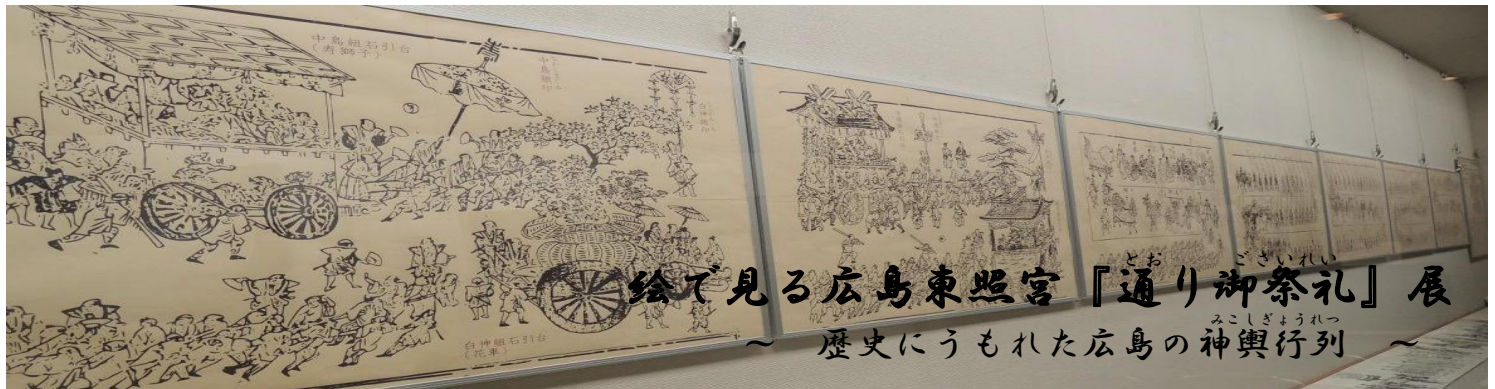 中島組石引台
(寿獅子)
中島組印
白神組印
白神組石引台
(花車)
絵で見る広島東照宮『通り御祭礼』展
とお ございれい
~ 歴史にうもれた広島の神輿行列 ~
みこしぎょうれつ